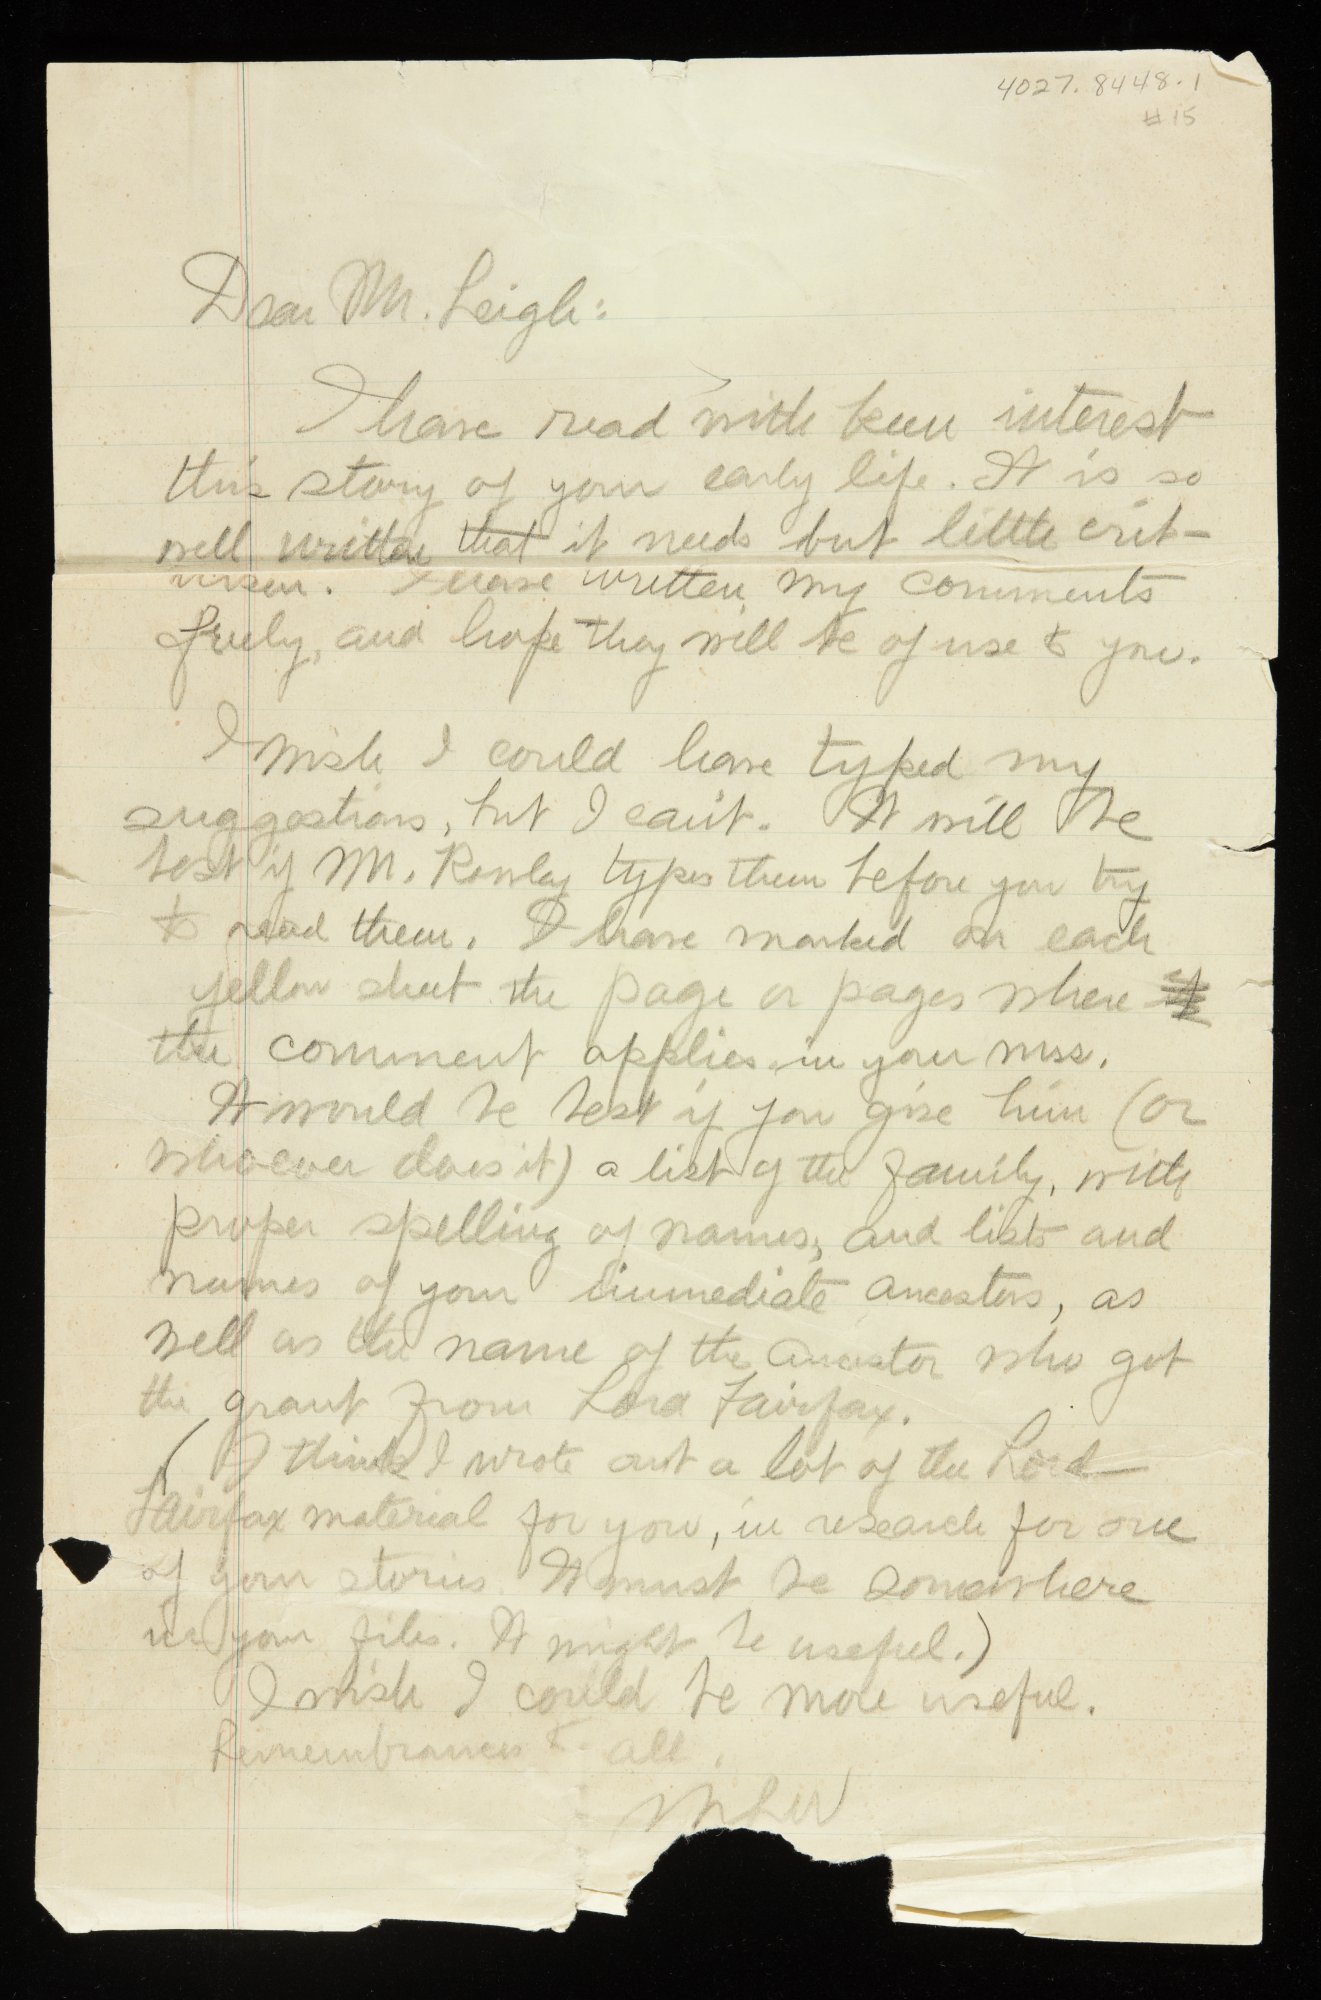 4027.8448.1
#15
Dear Mr. Leigh:
I have read with keen interest
this story of your early life. It is so
well written that it needs but little crit-
icism. I have written my comments
freely, and hope they will be of use to you.
I wish I could have typed my
suggestions, but I can't. It will be
best if Mr. types them before you try
to read them. I have marked on each
yellow sheet the page or pages where
the comment applies in your mss.
It would be best if you give him (or
whoever does it) a list of the family, with
proper spelling of names, and lists and
names of your immediate ancestors, as
well as the name of the ancestor who got
the grant from Lord Fairfax.
(I think I wrote out a lot of the Lord
Fairfax material for you, in research for one
of your stories. It must be somewhere
in your files. It might be useful.)
I wish I could be more useful.
Remembrances to all.